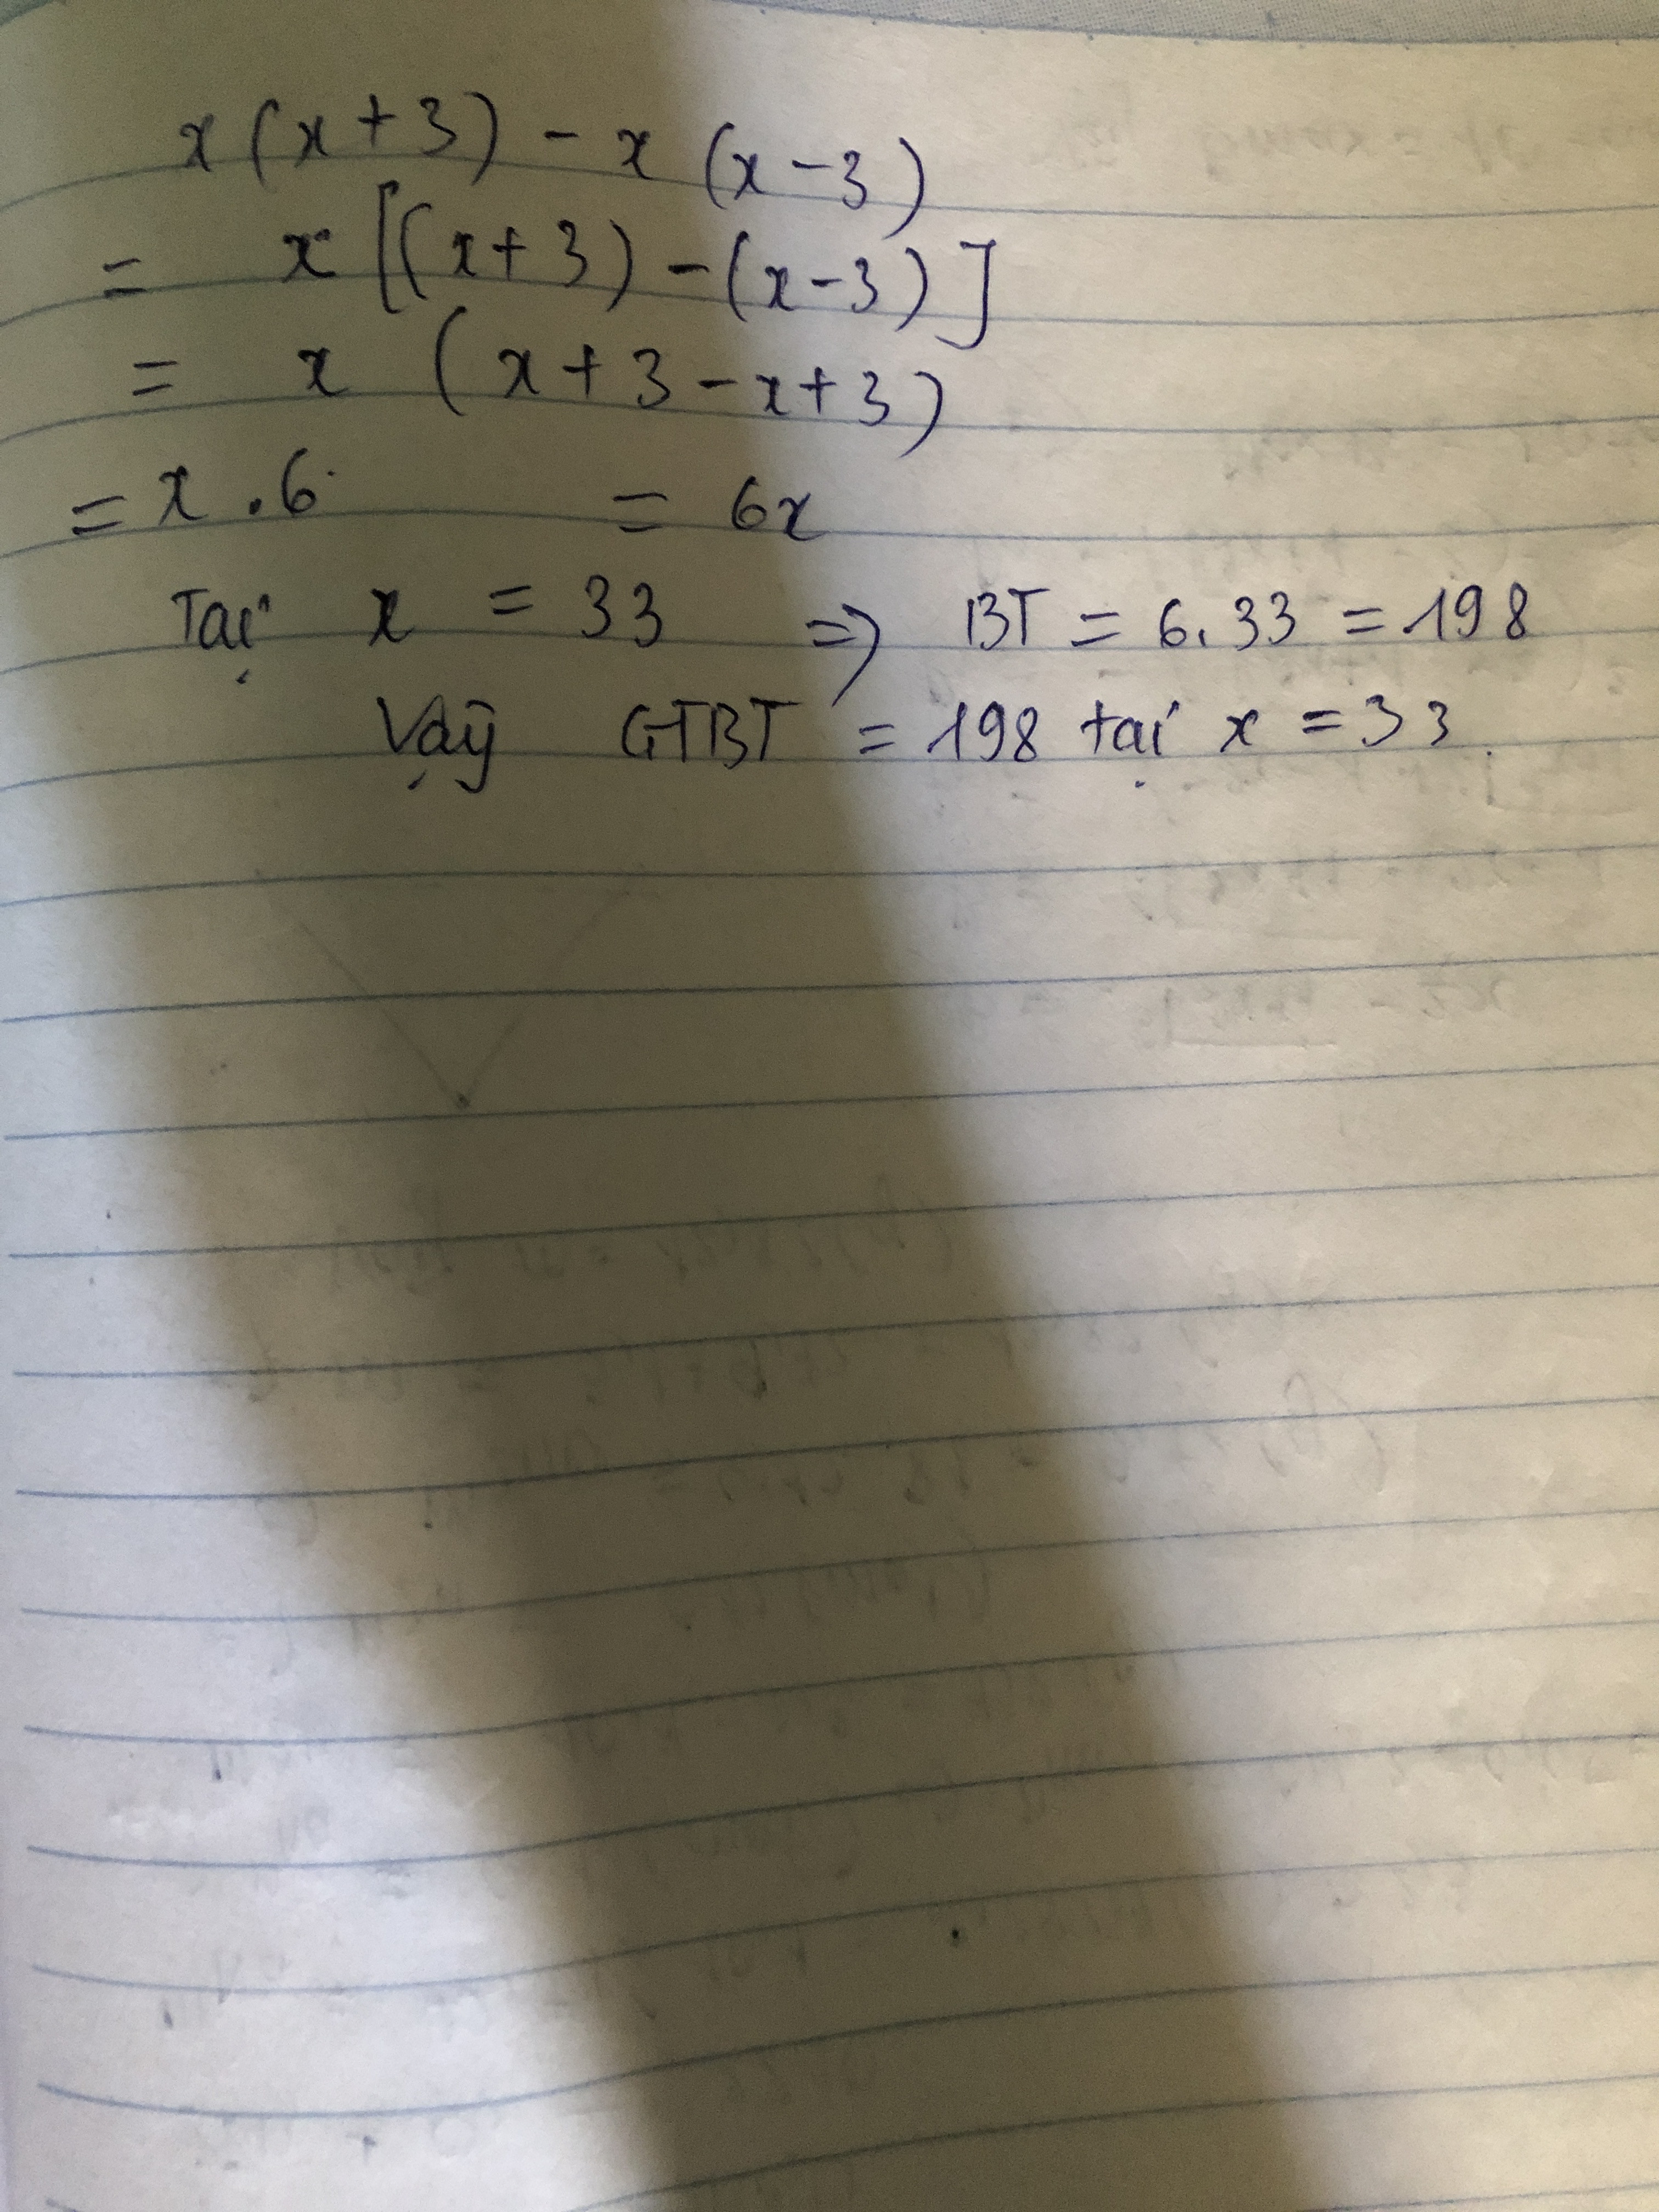 x(x+3) - x(x-3)
= x[(x+3) - (x-3)]
= x(x+3-x+3)
= x.6 = 6x
Tại x = 33 => BT = 6.33 = 198
Vậy GTBT = 198 tại x = 33.